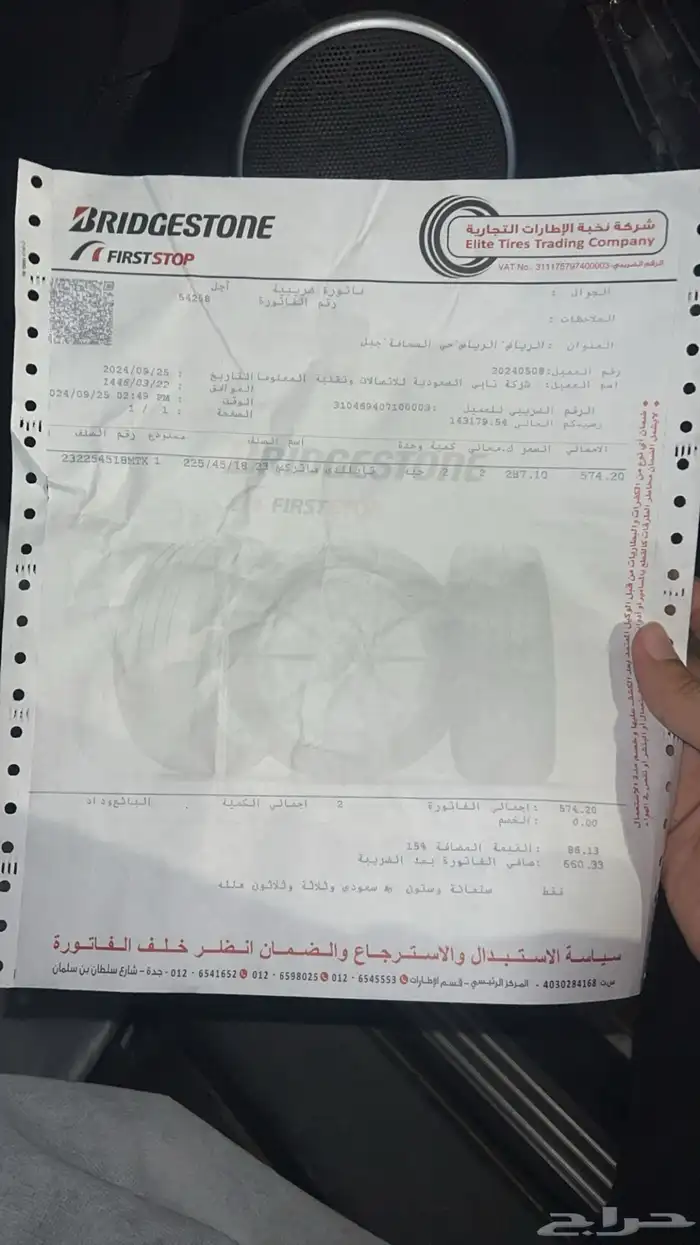 BRIDGESTONE
FIRST STOP
شركة نخبة الإطارات التجارية
Elite Tires Trading Company
VAT No. 311175797400003 الرقم الضريبي
الجوال :
فاتورة ضريبية آجل
رقم الفاتورة 54268
الملاحظات :
العنوان : الرياض الرياض حي الصحافة
رقم العميل: 20240508
اسم العميل: شركة تابي السعودية للاتصالات وتقنية المعلومات
التاريخ : 2024/09/25
الموافق : 1446/03/22
الرقم الضريبي للعميل: 310469407100003
الوقت : 024/09/25 02:49 PM
رصيدكم الحالي 143179.54
الصفحة : 1 / 1
مستودع رقم الصنف اسم الصنف وحدة كمية ك.مجاني السعر الاجمالي
232254518MTK 1 225/45/18 23 2 2 287.10 574.20
BRIDGESTONE
FIRST STOP
ضمان أي نوع من الكفرات والبطاريات من قبل الوكيل المعتمد بعد الكشف عليها وخصم مدة الاستعمال
574.20 اجمالي الفاتورة: 2 اجمالي الكمية البائع وداد
0.00 الخصم:
86.13 القيمة المضافة 15%:
660.33 صافي الفاتورة بعد الضريبة:
فقط ستمائة وستون ريال سعودي وثلاثة وثلاثون هللة
سياسة الاستبدال والاسترجاع والضمان انظر خلف الفاتورة
س.ت 4030284168 - المركز الرئيسي - قسم الإطارات 6545553 - 012 6598025 - 012 6541652 - 012 - جدة - شارع سلطان بن سلمان
حراج